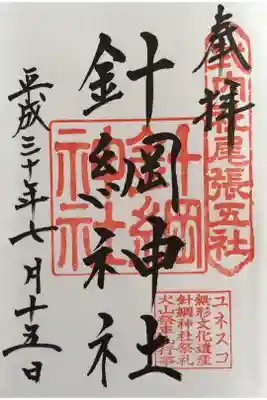 奉拝
尾張五社
針綱神社
針綱
神社
平成三十年七月十五日
ユネスコ
無形文化遺産
針綱神社祭礼
犬山祭車山行事